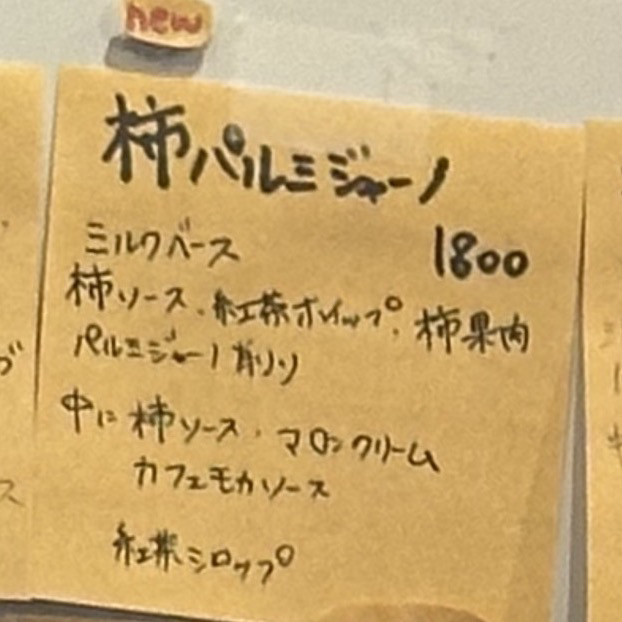 new
柿パルミジャーノ
ミルクベース 1800
柿ソース、紅茶ホイップ、柿果肉
パルミジャーノ削り
中に柿ソース、マロンクリーム
カフェモカソース
紅茶シロップ